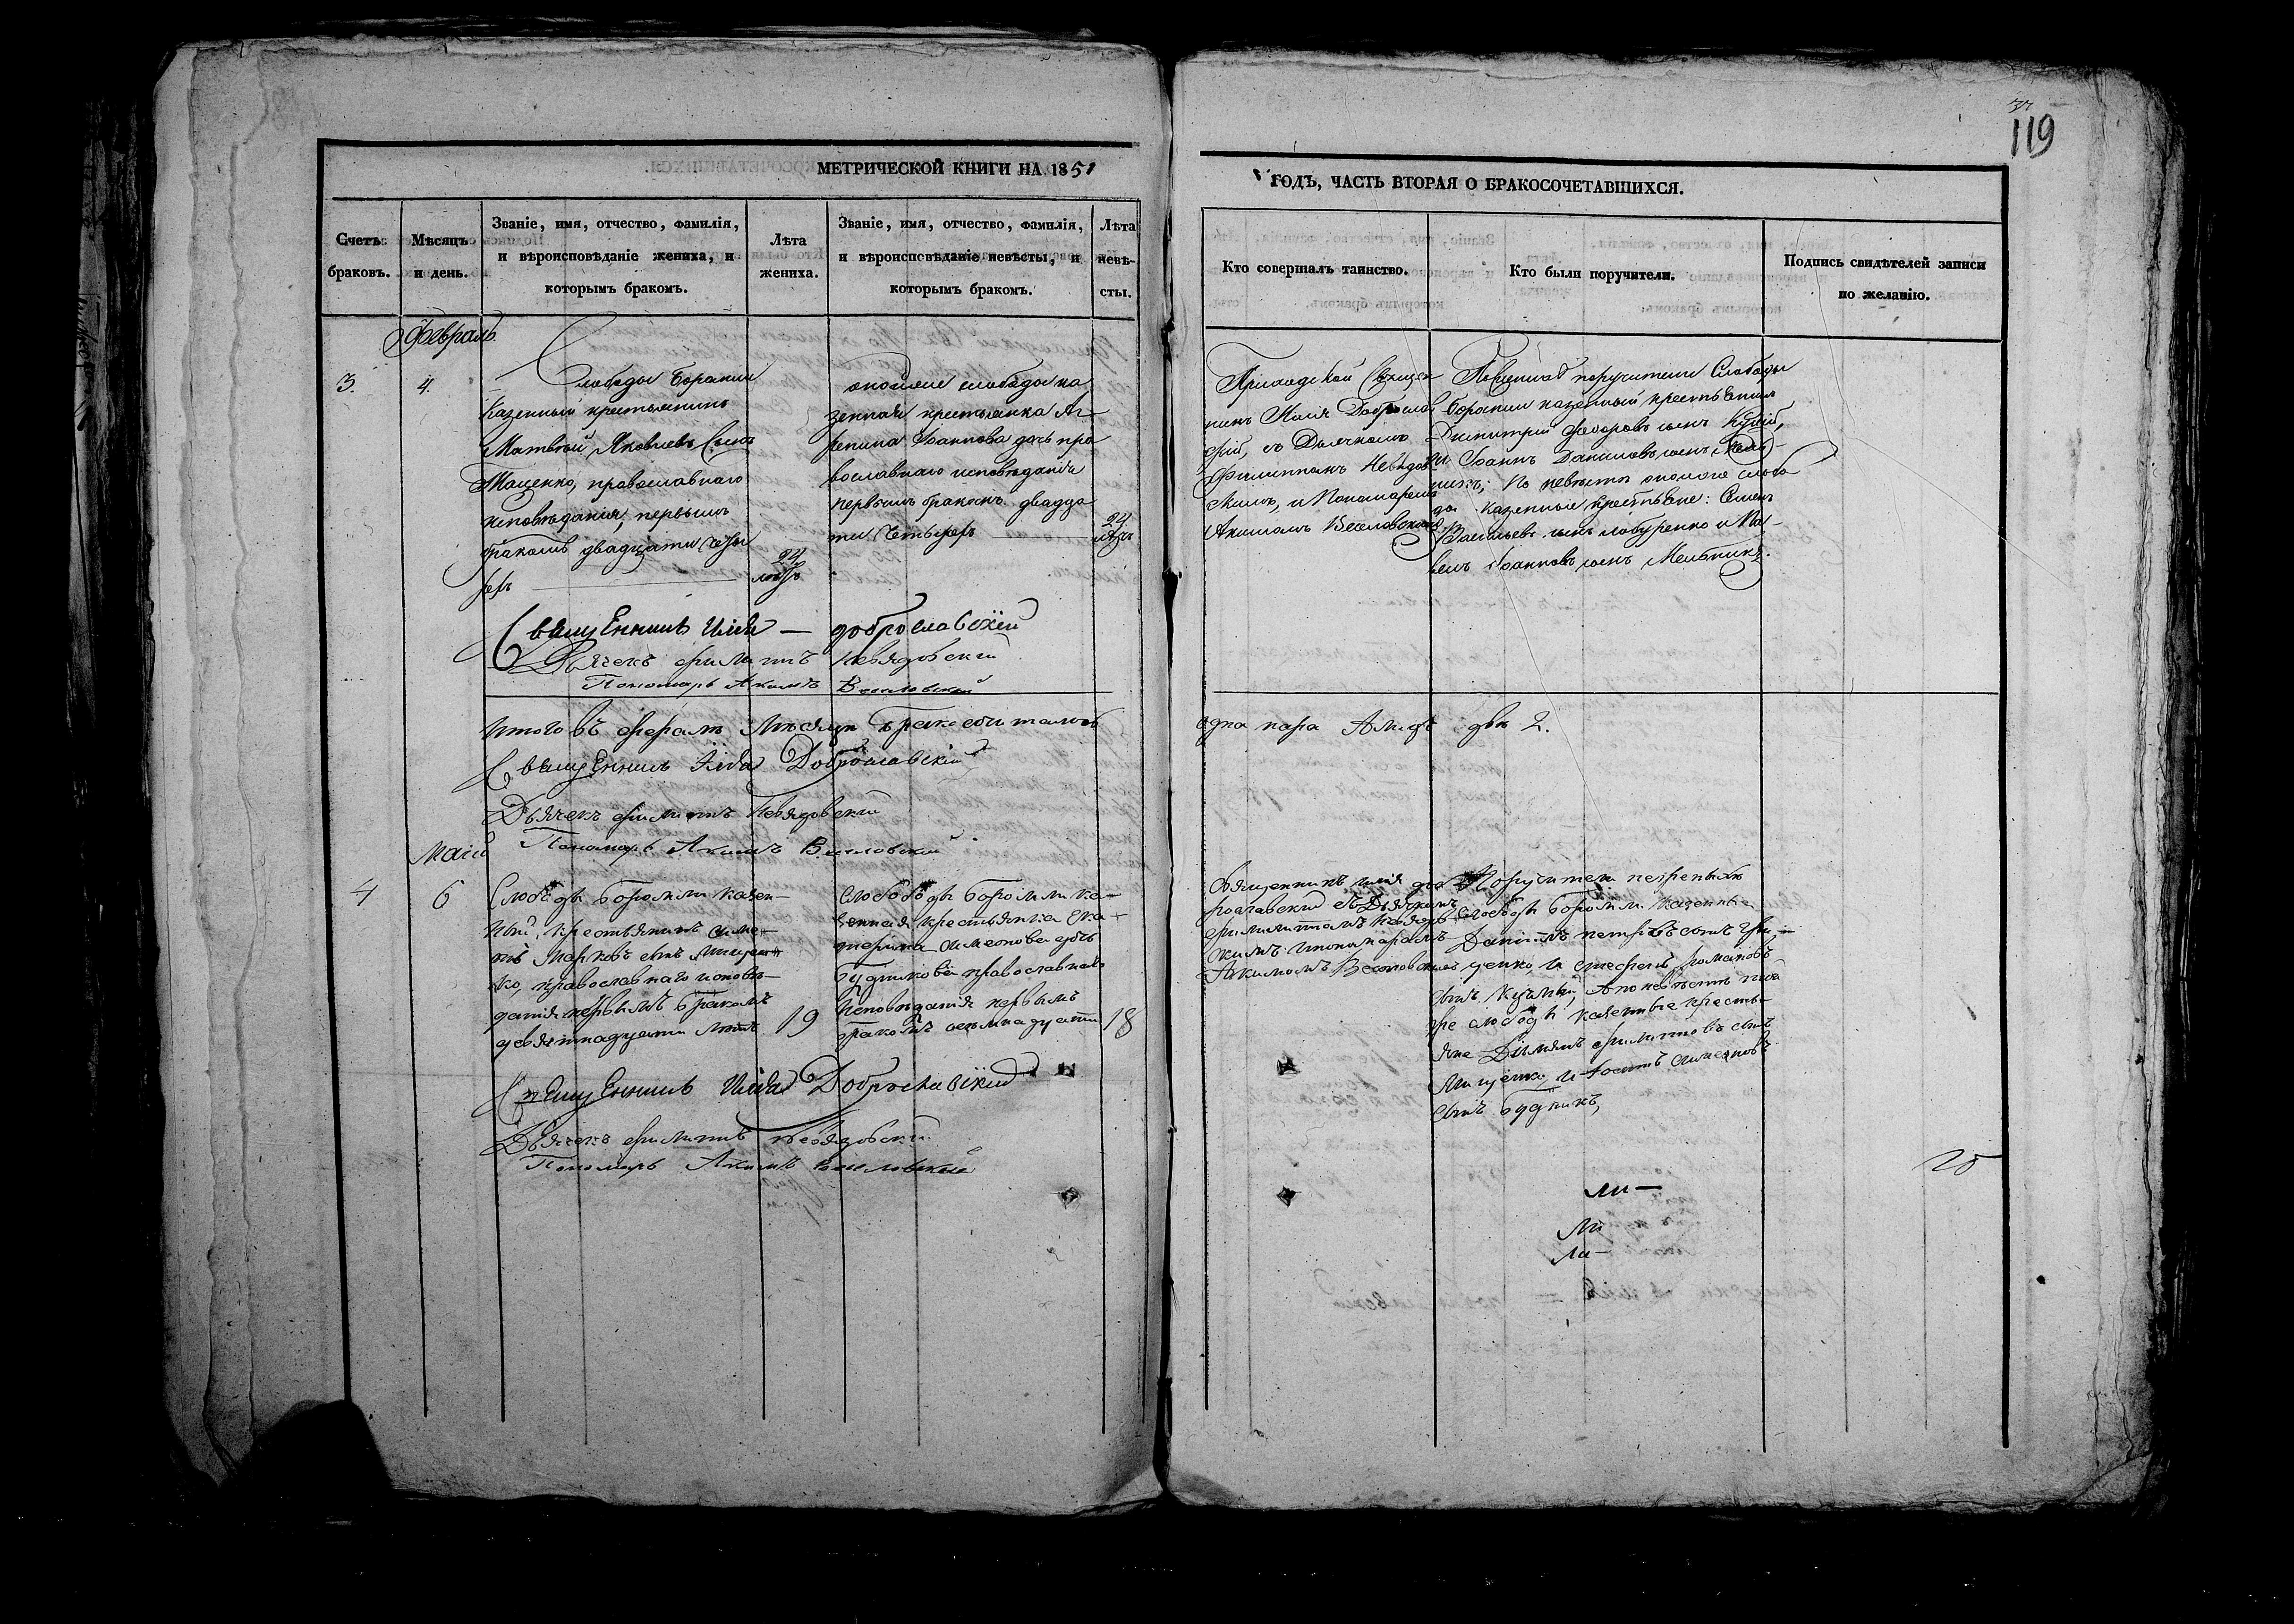 119
МЕТРИЧЕСКОЙ КНИГИ НА 1851
ГОДЪ, ЧАСТЬ ВТОРАЯ О БРАКОСОЧЕТАВШИХСЯ.
Счетъ браковъ.
Мѣсяцъ и день.
Званіе, имя, отчество, фамилія,
и вѣроисповѣданіе жениха, и
которымъ бракомъ.
Лѣта
жениха.
Званіе, имя, отчество, фамилія,
и вѣроисповѣданіе невѣсты, и
которымъ бракомъ.
Лѣта
невѣ-
сты.
Кто совершалъ таинство.
Кто были поручители.
Подпись свидѣтелей записи
по желанію.
Февраль
3.
4.
Слободы Боромли
Казенный крестьянинъ
Матвѣй Яковлевъ сынъ
Маценко, православнаго
исповѣданія, первымъ
бракомъ двадцати четы
рехъ
24
лѣтъ
слободы ка
зенная крестьянка Аг-
репина Іоаннова дочь пра
вославнаго исповѣданія
первымъ бракомъ двадца
ти четырехъ
24
лѣтъ
Приходской Священ
никъ Илія Доброслав
скій, съ Дьячкомъ
Филиппомъ Невядов
скимъ, и Пономаремъ
Акимомъ Веселовскимъ
поручители Слободы
Боромли казенный крестьянинъ
Димитрій Федоровъ сынъ
и Іоаннъ Даниловъ сынъ Мель-
никъ; По невѣстѣ слобо
ды казенные крестьяне: Семенъ
Васильевъ сынъ и Па-
велъ Іоанновъ сынъ Мельникъ.
Священникъ Илія — Доброславскій
Дьячекъ Филиппъ Невядовскій
Пономарь Акимъ Веселовскій
Итого въ Феврале Месяце бракосочеталось
одна пара А лицъ две 2.
Священникъ Илія Доброславскій
Дьячекъ Филиппъ Невядовскій
Пономарь Акимъ Веселовскій
Маій
4
6
Слободы Боромли казен-
ный крестьянинъ Симе-
онъ Марковъ сынъ Мищен-
ко, православнаго исповѣ-
данія первымъ бракомъ
девятнадцати лѣтъ
19
Слободы Боромли ка-
зенная крестьянка Ека-
терина Симеонова дочь
Будникова православнаго
исповѣданія первымъ
бракомъ
18
Священникъ Илія Доб
рославскій съ Дьячкомъ
Филиппомъ Невядов
скимъ и пономаремъ
Акимомъ Веселовскимъ
Поручители
слободы Боромли казенные
Даніилъ Петровъ сынъ Гри-
ценко, и Стефанъ Романовъ
сынъ А по невѣстѣ той
же слободы казенные кресть-
яне Даміянъ Филипповъ сынъ
Мищенко, и Іосифъ Симеоновъ
сынъ Будникъ,
Священникъ Илія Доброславскій
Дьячекъ Филиппъ Невядовскій
Пономарь Акимъ Веселовскій
ли —
ли
ли —